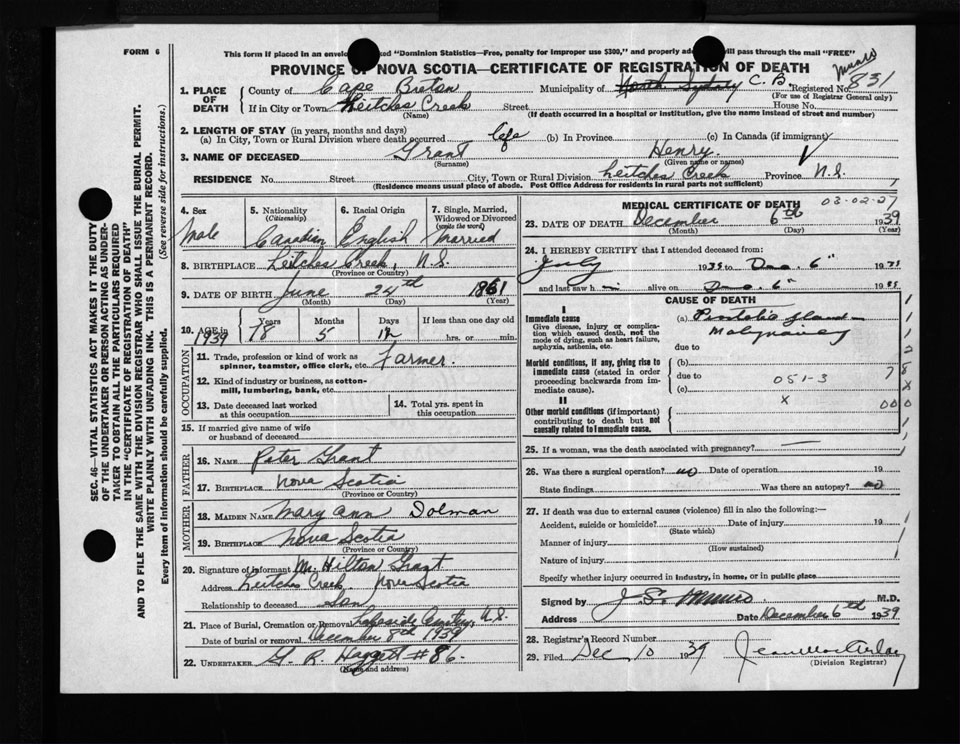 FORM 6
This form if placed in an envelope marked "Dominion Statistics—Free, penalty for improper use $300," and properly addressed will pass through the mail "FREE"
PROVINCE OF NOVA SCOTIA—CERTIFICATE OF REGISTRATION OF DEATH
1. PLACE OF DEATH
County of Cape Breton Municipality of North Sydney C. B. Registered No. 831
(For use of Registrar General only)
If in City or Town Leitches Creek Street House No.
(Name) (If death occurred in a hospital or institution, give the name instead of street and number)
2. LENGTH OF STAY (in years, months and days)
(a) In City, Town or Rural Division where death occurred life (b) In Province (c) In Canada (if immigrant)
3. NAME OF DECEASED Grant Henry.
(Surname) (Given name or names)
RESIDENCE No. Street City, Town or Rural Division Leitches Creek Province N.S.
(Residence means usual place of abode. Post Office Address for residents in rural parts not sufficient)
4. Sex Male
5. Nationality (Citizenship) Canadian
6. Racial Origin English
7. Single, Married, Widowed or Divorced (write the word) Married
8. BIRTHPLACE Leitches Creek, N.S.
(Province or Country)
9. DATE OF BIRTH June 24th 1861
(Month) (Day) (Year)
10. AGE in 1939 78 Years 5 Months 12 Days If less than one day old hrs. or min.
OCCUPATION
11. Trade, profession or kind of work as spinner, teamster, office clerk, etc. Farmer.
12. Kind of industry or business, as cotton-mill, lumbering, bank, etc.
13. Date deceased last worked at this occupation
14. Total yrs. spent in this occupation
15. If married give name of wife or husband of deceased
FATHER
16. NAME Peter Grant
17. BIRTHPLACE Nova Scotia
(Province or Country)
MOTHER
18. MAIDEN NAME Mary Ann Dolman
19. BIRTHPLACE Nova Scotia
(Province or Country)
20. Signature of informant M. Hilton Grant
Address Leitches Creek Nova Scotia
Relationship to deceased Son
21. Place of Burial, Cremation or Removal Lakeside Cemetery N.S.
Date of burial or removal December 8th 1939
22. UNDERTAKER G. R. #86.
(Name and address)
MEDICAL CERTIFICATE OF DEATH
03-02-27
23. DATE OF DEATH December 6th 1939
(Month) (Day) (Year)
24. I HEREBY CERTIFY that I attended deceased from:
July 1939 to Dec. 6" 1939
and last saw him alive on Dec. 6" 1939
CAUSE OF DEATH
I
Immediate cause
Give disease, injury or complication which caused death, not the mode of dying, such as heart failure, asphyxia, asthenia, etc.
(a) Prostate gland
Malignancy
due to
Morbid conditions, if any, giving rise to immediate cause (stated in order proceeding backwards from immediate cause).
(b)
due to
051-3
(c)
x
II
Other morbid conditions (if important) contributing to death but not causally related to immediate cause.
25. If a woman, was the death associated with pregnancy?
26. Was there a surgical operation? no Date of operation 19
State findings Was there an autopsy? no
27. If death was due to external causes (violence) fill in also the following:—
Accident, suicide or homicide? Date of injury 19
(State which)
Manner of injury
(How sustained)
Nature of injury
Specify whether injury occurred in industry, in home, or in public place
Signed by J. S. Munro M.D.
Address Date December 6th 1939
28. Registrar's Record Number
29. Filed Dec 10 1939
(Division Registrar)
SEC. 46—VITAL STATISTICS ACT MAKES IT THE DUTY
OF THE UNDERTAKER OR PERSON ACTING AS UNDER-
TAKER TO OBTAIN ALL THE PARTICULARS REQUIRED
IN THE "CERTIFICATE OF REGISTRATION OF DEATH"
AND TO FILE THE SAME WITH THE DIVISION REGISTRAR WHO SHALL ISSUE THE BURIAL PERMIT.
WRITE PLAINLY WITH UNFADING INK. THIS IS A PERMANENT RECORD.
Every item of information should be carefully supplied. (See reverse side for instructions.)